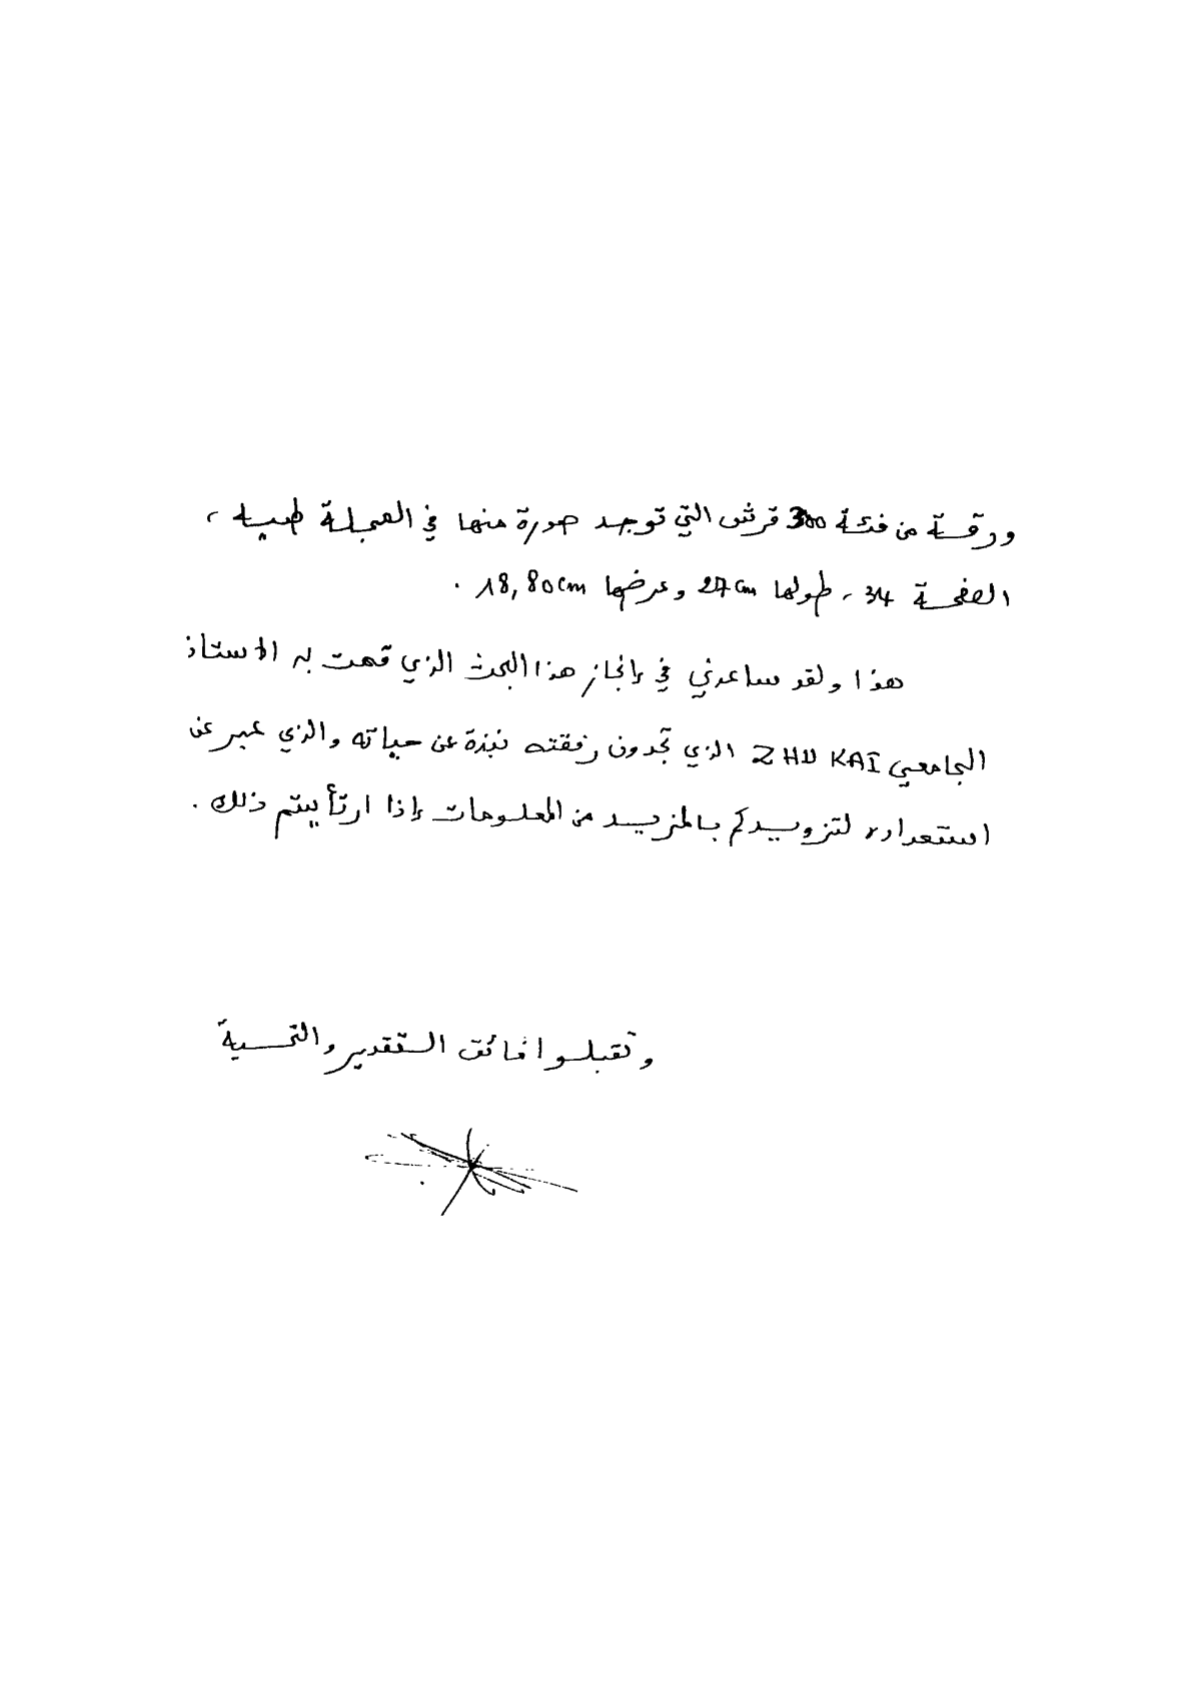 ورقة من فئة 300 قرش التي توجد صورة منها في المجلة طيه ،
الصفحة 34 ، طولها 27cm وعرضها 18,80cm .
هذا ولقد ساعدني في إنجاز هذا البحث الذي قمت به الاستاذ
الجامعي ZHU KAI الذي تجدون رفقته نبذة عن حياته والذي عبر عن
استعداده لتزويدكم بالمزيد من المعلومات إذا ارتأيتم ذلك .
وتقبلوا فائق التقدير والتحية